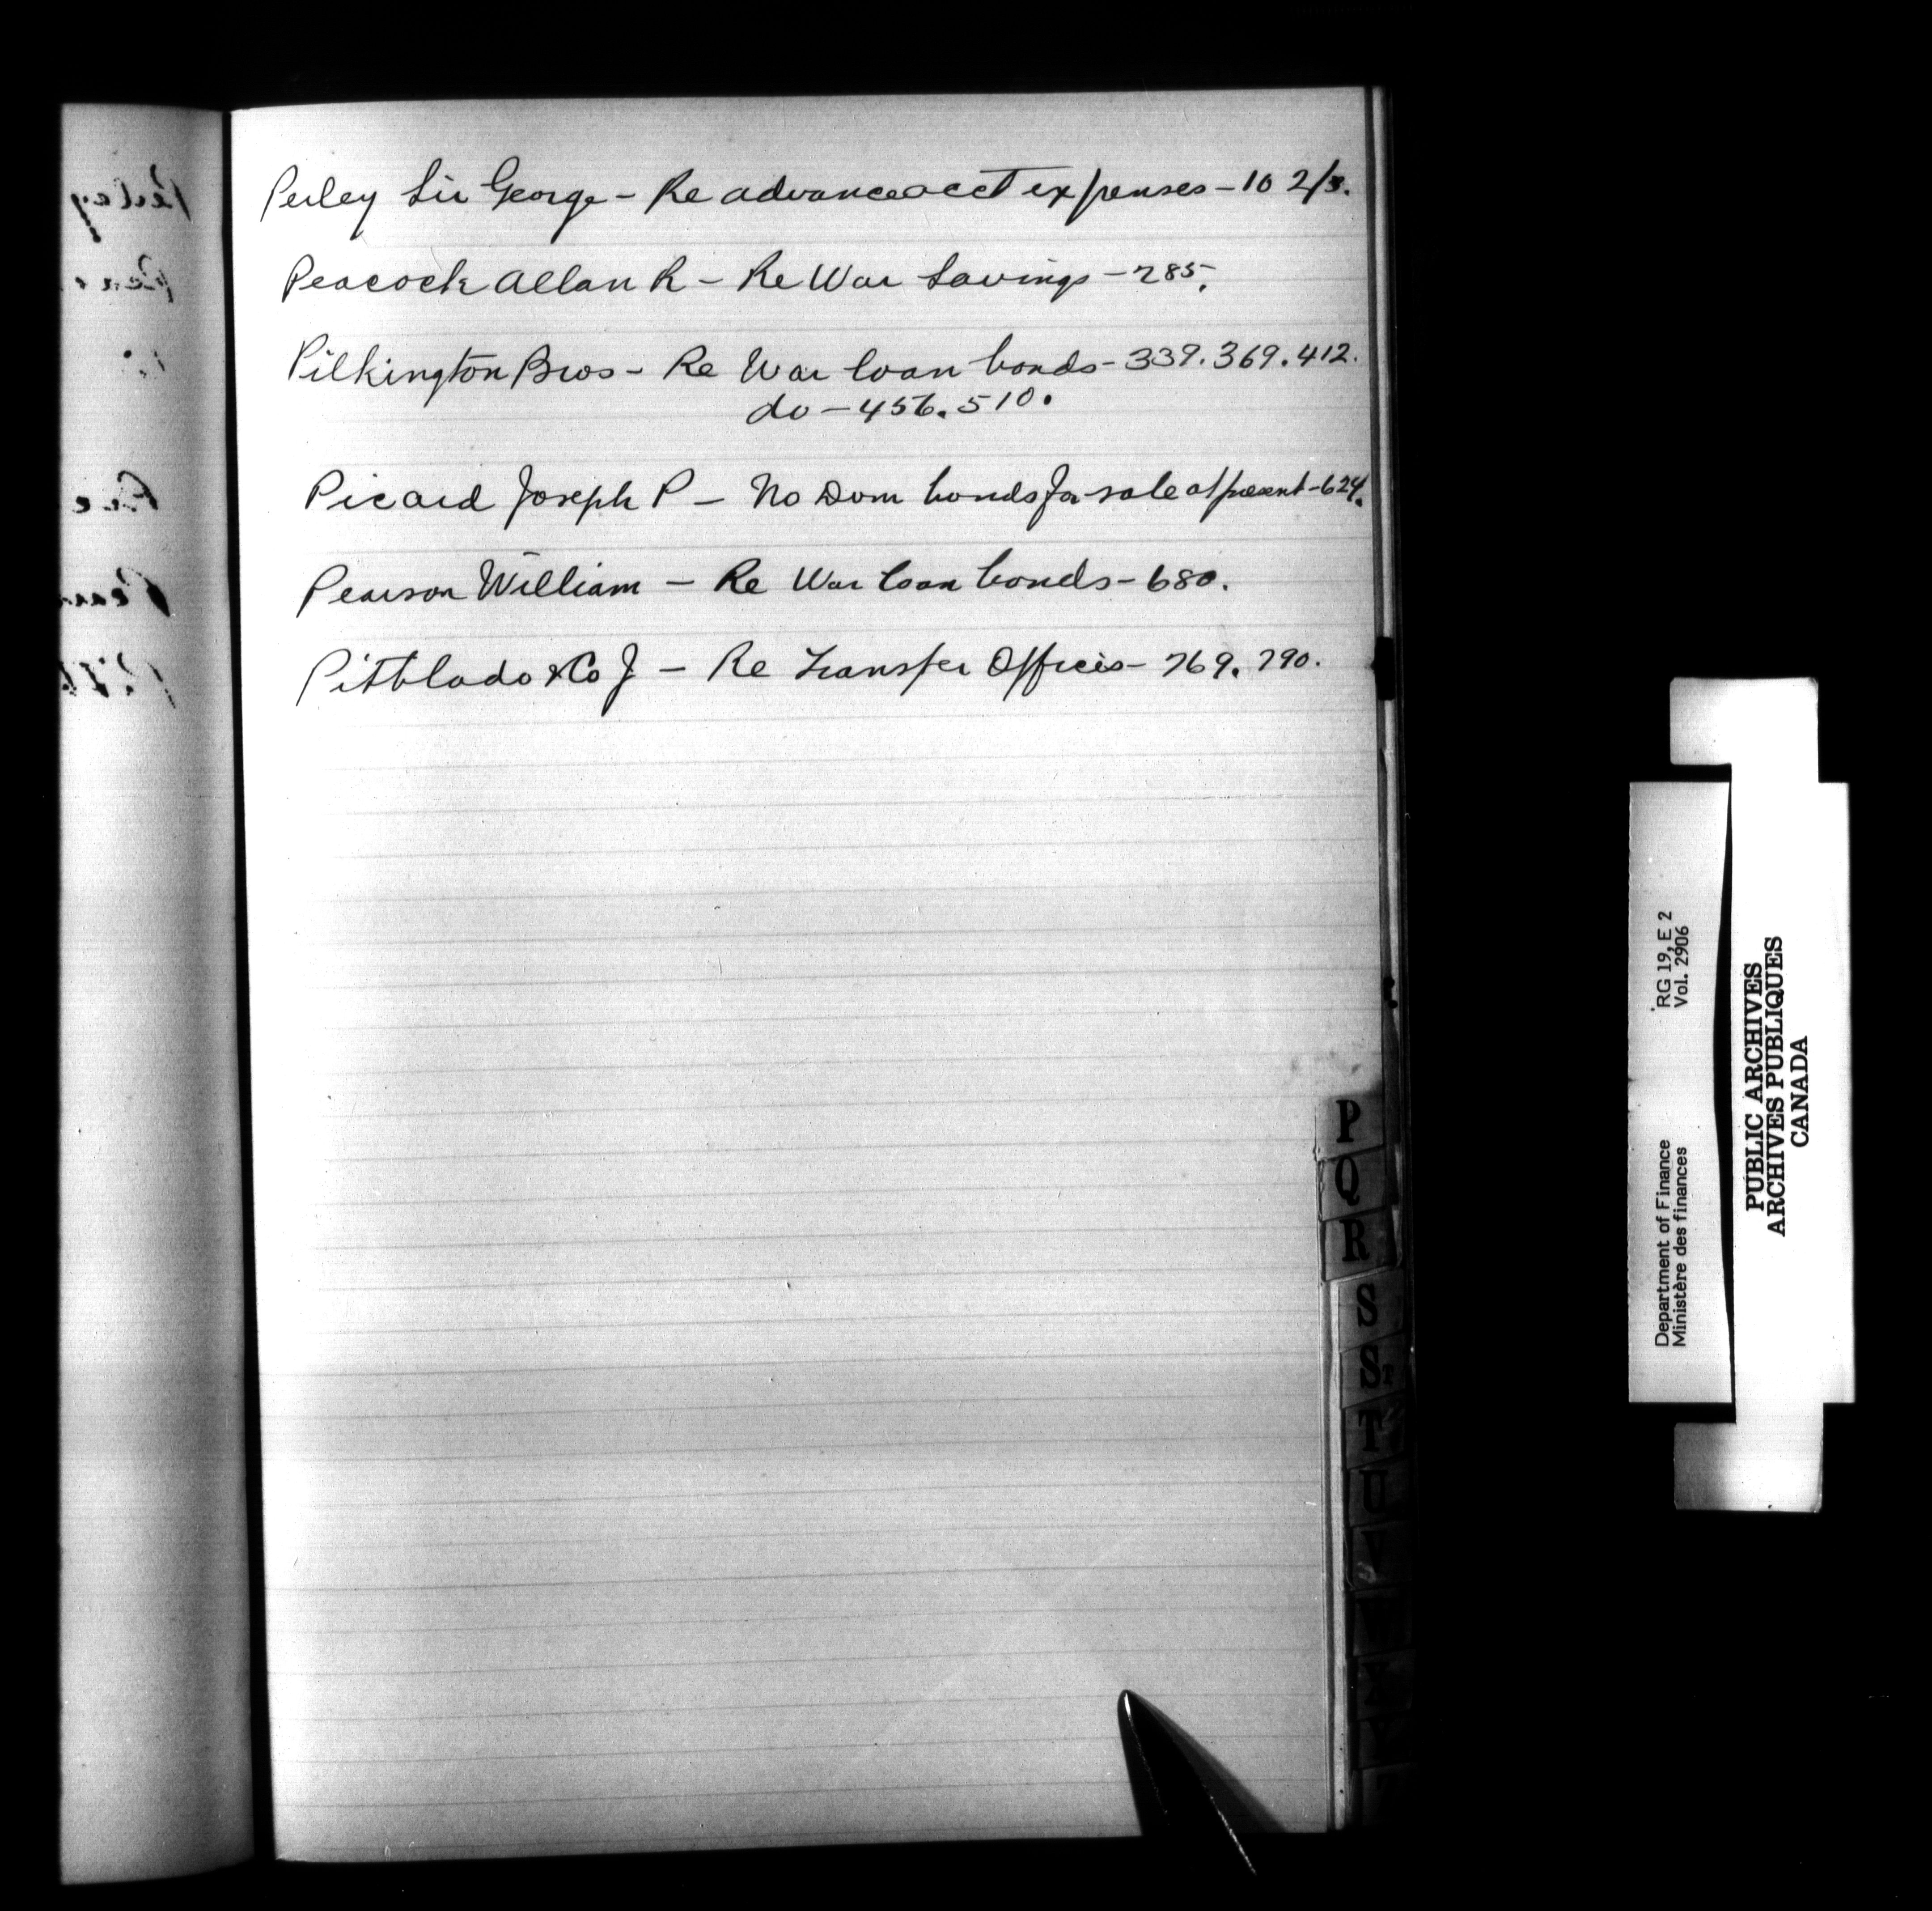 Perley Sir George - Re advance acct expenses - 10 2/3.
Peacock Allan R - Re War Savings - 285.
Pilkington Bros - Re War loan bonds - 339. 369. 412.
do - 456. 510.
Picard Joseph P - No Dom bonds for sale at present - 624.
Pearson William - Re War loan bonds - 680.
Pitblado & Co J - Re Transfer Offices - 769. 790.
P
Q
R
S
T
U
V
RG 19, E 2
Vol. 2906
Department of Finance
Ministère des finances
PUBLIC ARCHIVES
ARCHIVES PUBLIQUES
CANADA